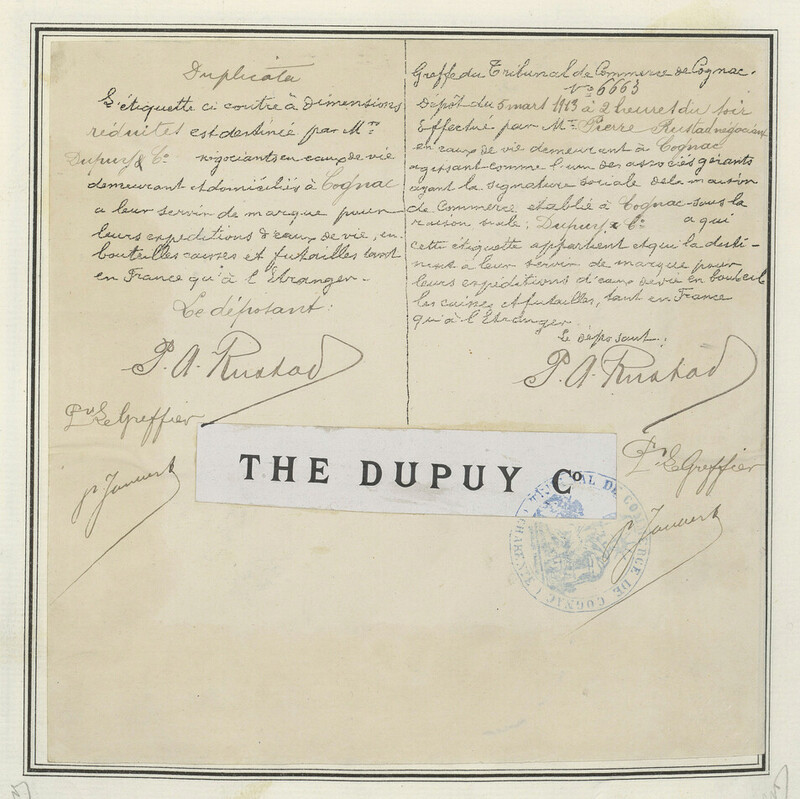 Duplicata
L'étiquette ci contre à Dimensions
réduites est destinée par Mrs
Dupuy & Co négociants en eaux de vie
demeurant et domiciliés à Cognac
a leur servir de marque pour
leurs expeditions d'eaux de vie, en
bouteilles caisses et futailles tant
en France qu'à l'Etranger.
Le déposant.
P. A. Rustad
Pr Le Greffier
Greffe du Tribunal de Commerce de Cognac.
No 6663
Dépôt du 5 mars 1913 à 2 heures du soir
Effectué par Mr Pierre Rustad négociant
en eaux de vie demeurant à Cognac
agissant comme l'un des associés gérants
ayant la signature sociale de la maison
de Commerce etablie à Cognac sous la
raison sociale: Dupuy & Co a qui
cette étiquette appartient et qui la desti-
nent à leur servir de marque pour
leurs expeditions d'eaux de vie en bouteil
les caisses et futailles, tant en France
qu'à l'Etranger.
Le déposant:
P. A. Rustad
Pr Le Greffier
THE DUPUY Co
TRIBUNAL DE COMMERCE DE COGNAC (CHARENTE)